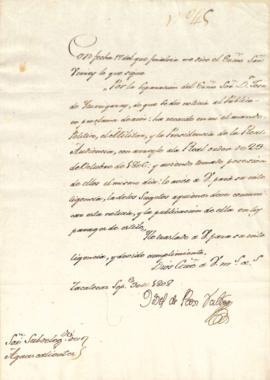 N.º 45
Con fecha 17 del que finaliza me dice el Exmo Sor
Virrey lo que sigue
"Por la separacion del Exmo Sor Dn Josè
de Yturrigaray, de que hè dado noticia al Publico
en proclama de ayer: ha recaido en mi el mando
Politico, el Militar, y la Presidencia de la Real
Audiencia, con arreglo à la Real orden de
de Octubre de 1806: y haviendo tomado posecion
de ellos el mismo dia: lo aviso à V. para su inte
ligencia, la de los Sugetos aquienes deve comuni
car esta noticia, y la publicacion de ella en los
parages de estilo.
Lo traslado à V. para su inte
ligencia, y devido cumplimiento.
Dios Gue à V. m.s a.s
Zacatecas Sepe de 1808
Sor Subdelegdo de
Aguascalientes